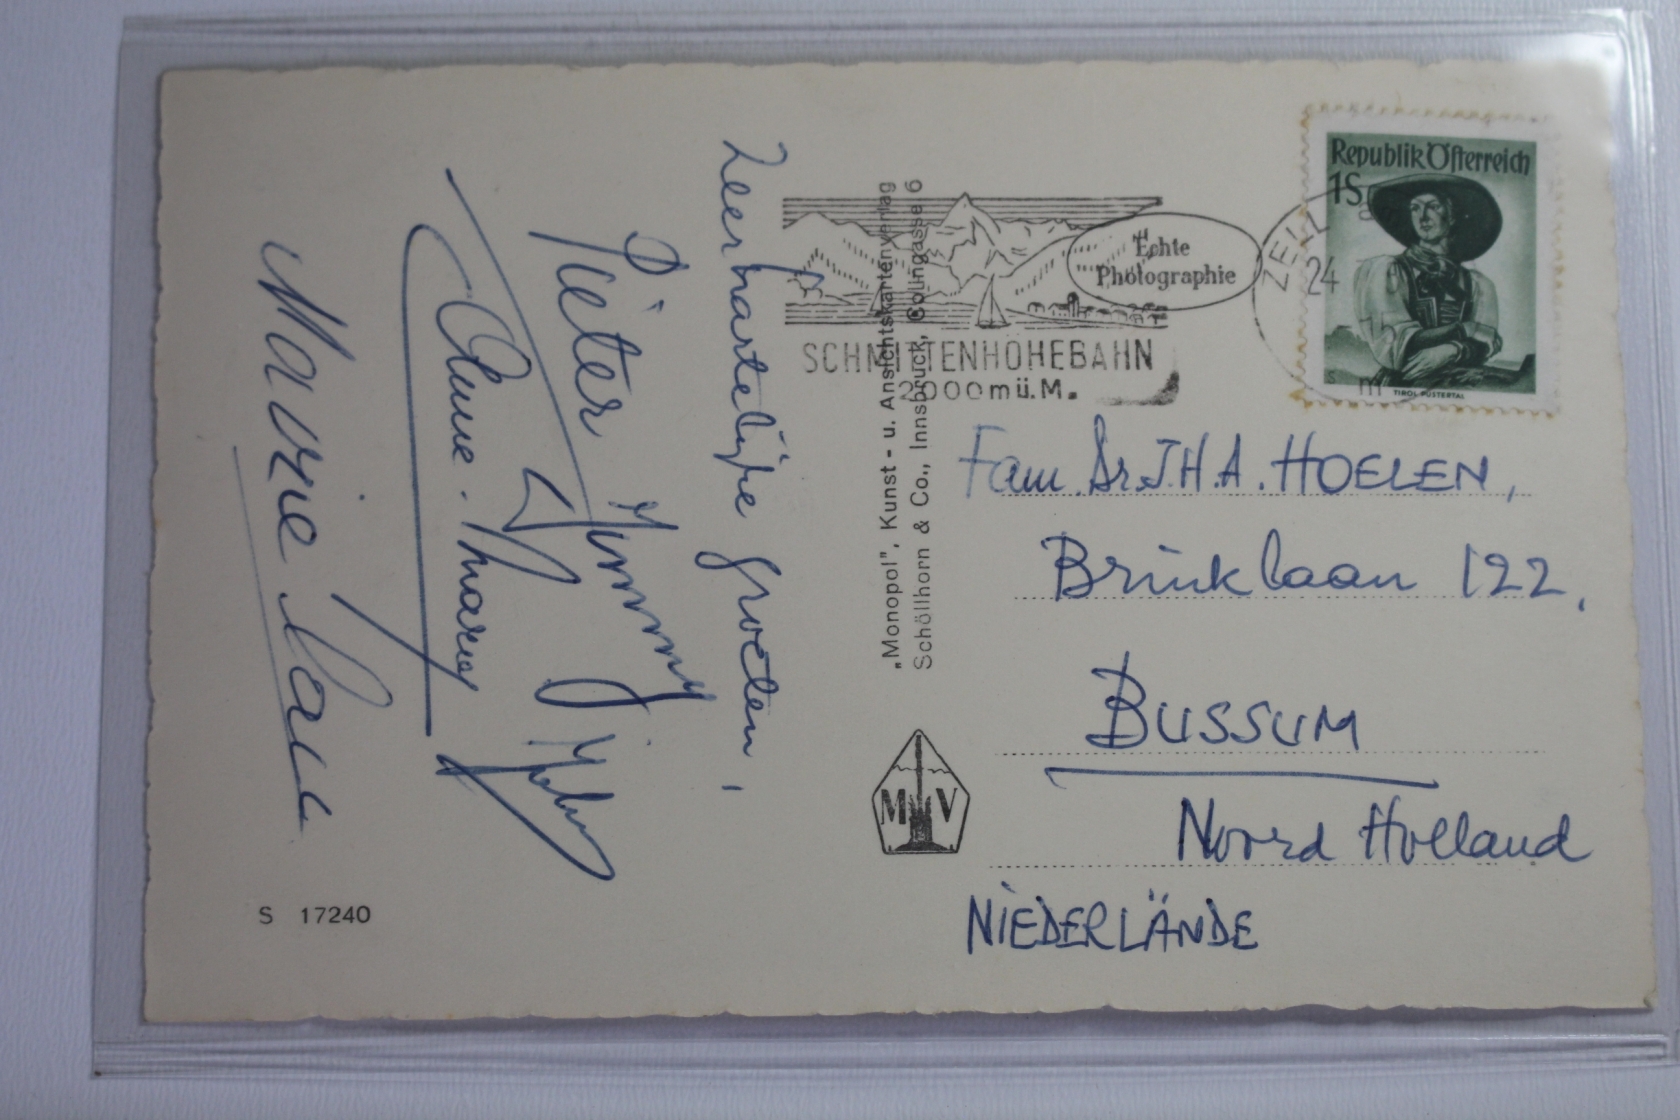 Zeer hartelijke groeten,
Pieter Jimmy
Anne-Mary
Echte
Photographie
SCHMITTENHÖHEBAHN
2000 m ü. M.
ZELL
24
Republik Österreich
1S
TIROL PUSTERTAL
„Monopol", Kunst- u. Ansichtskartenverlag
Schöllhorn & Co., Innsbruck, Colingasse 6
M V
Fam. Dr. J.H.A. HOELEN,
Brinklaan 122,
BUSSUM
Noord Holland
NIEDERLÄNDE
S 17240